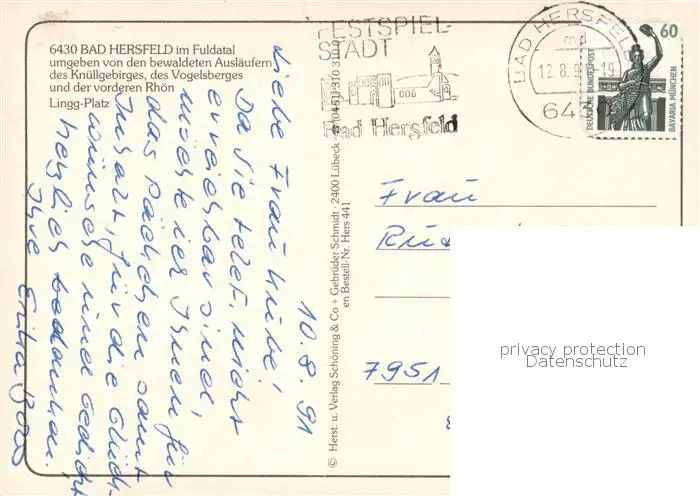 6430 BAD HERSFELD im Fuldatal
umgeben von den bewaldeten Ausläufern
des Knüllgebirges, des Vogelsberges
und der vorderen Rhön
Lingg-Platz
FESTSPIEL-
STADT
Bad Hersfeld
BAD HERSFELD
md
12.8.9 -19
64
60
DEUTSCHE BUNDESPOST
BAVARIA MÜNCHEN
10.8.91
Liebe Frau
Da Sie telef. nicht
erreichbar sind,
möchte ich Ihnen für
das Päckchen samt
Inhalt, für die Glück-
wünsche und Gedicht
herzlich bedanken.
Ihre
© Herst. u. Verlag Schöning & Co + Gebrüder Schmidt · 2400 Lübeck · (0451) 310 310
en Bestell-Nr. Hers 441
Frau
7951
privacy protection
Datenschutz